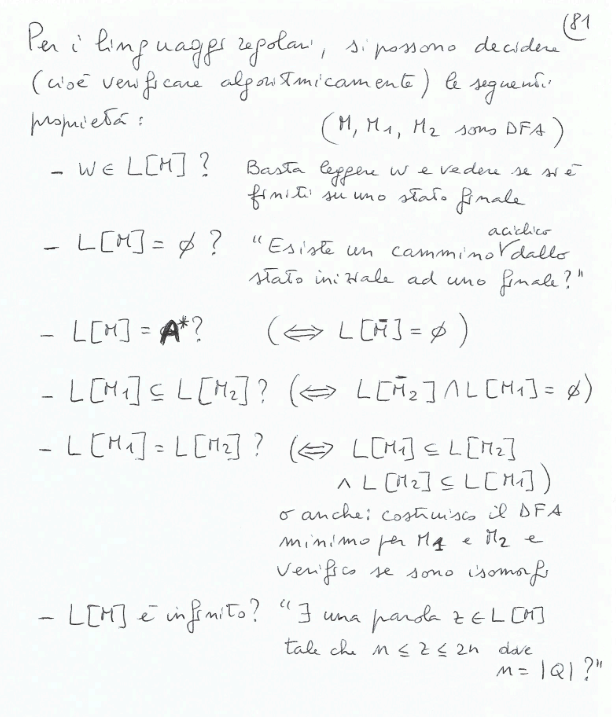 81
Per i linguaggi regolari, si possono decidere
(cioè verificare algoritmicamente) le seguenti
proprietà: (M, M1, M2 sono DFA)
- W ∈ L[M] ? Basta leggere w e vedere se si è
finiti su uno stato finale
- L[M] = ∅ ? "Esiste un cammino aciclico dallo
stato iniziale ad uno finale?"
- L[M] = A* ? (⇔ L[M̄] = ∅)
- L[M1] ⊆ L[M2] ? (⇔ L[M̄2] ∩ L[M1] = ∅)
- L[M1] = L[M2] ? (⇔ L[M1] ⊆ L[M2]
∧ L[M2] ⊆ L[M1])
o anche: costruisco il DFA
minimo per M1 e M2 e
verifico se sono isomorfi
- L[M] è infinito? "∃ una parola z ∈ L[M]
tale che n ≤ z ≤ 2n dove
n = |Q| ?"